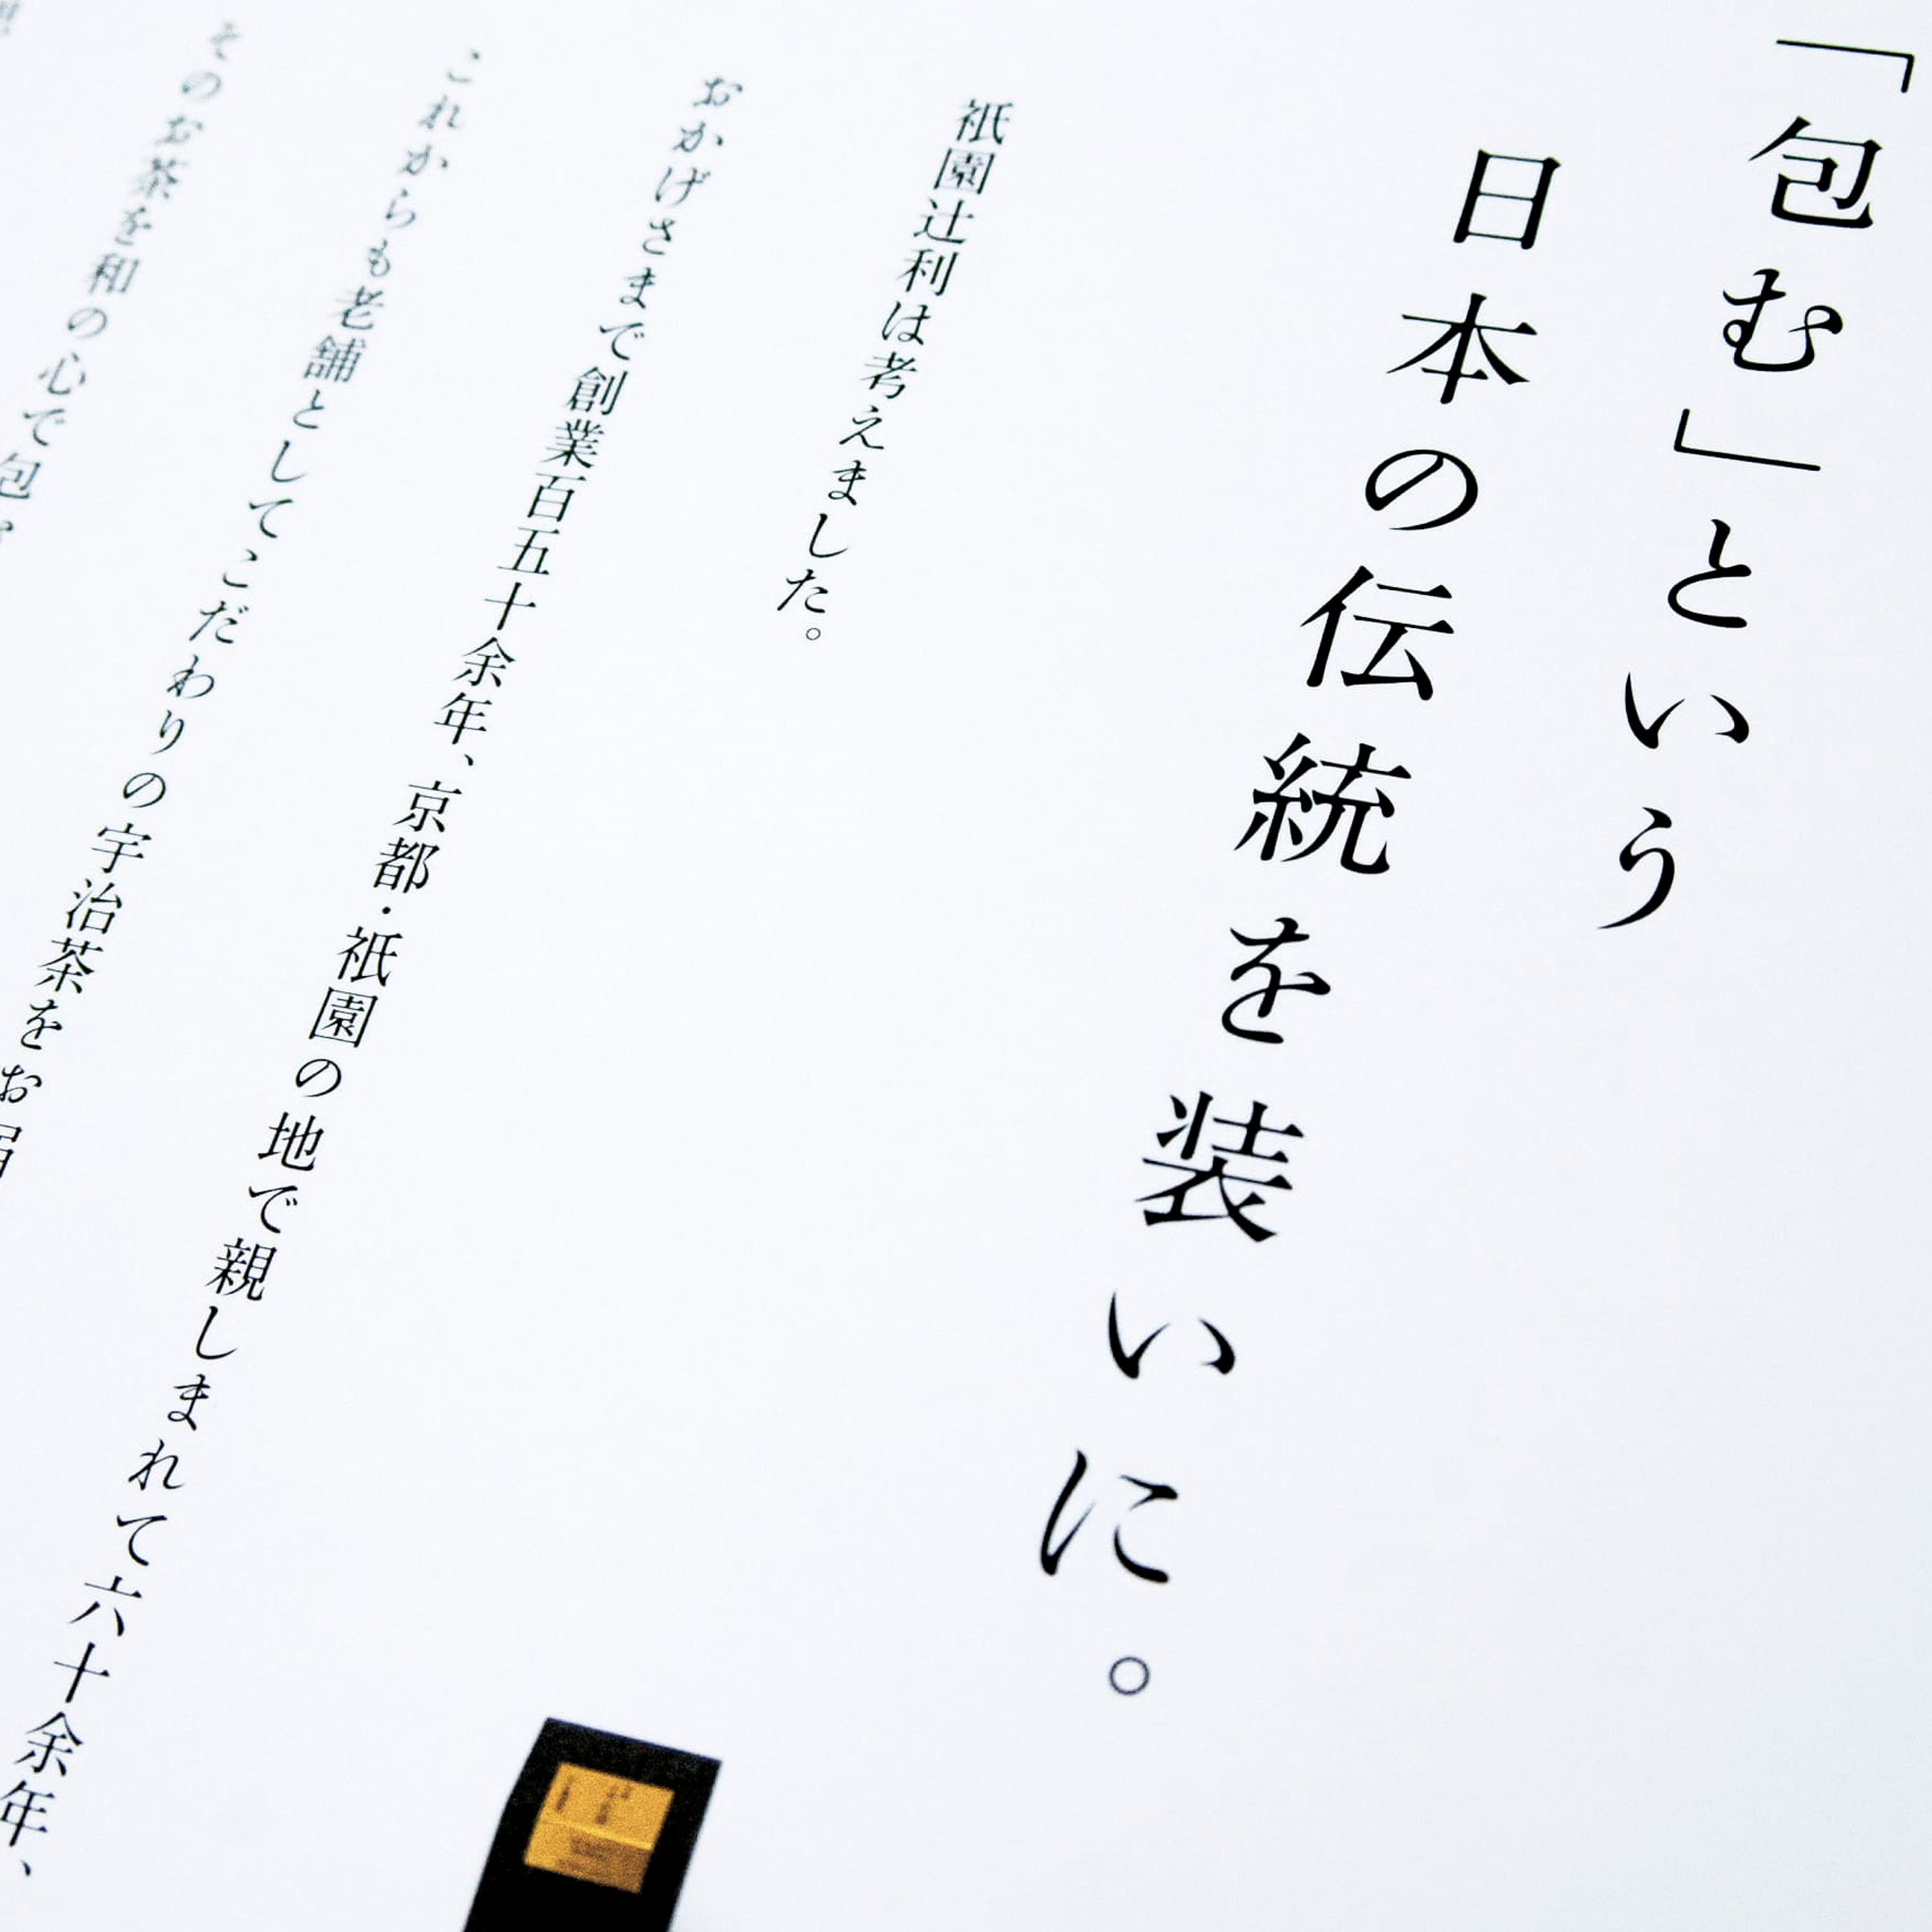 「包む」という
日本の伝統を装いに。
祇園辻利は考えました。
おかげさまで創業百五十余年、京都・祇園の地で親しまれて六十余年、
これからも老舗としてこだわりの宇治茶をお届
そのお茶を和の心で包